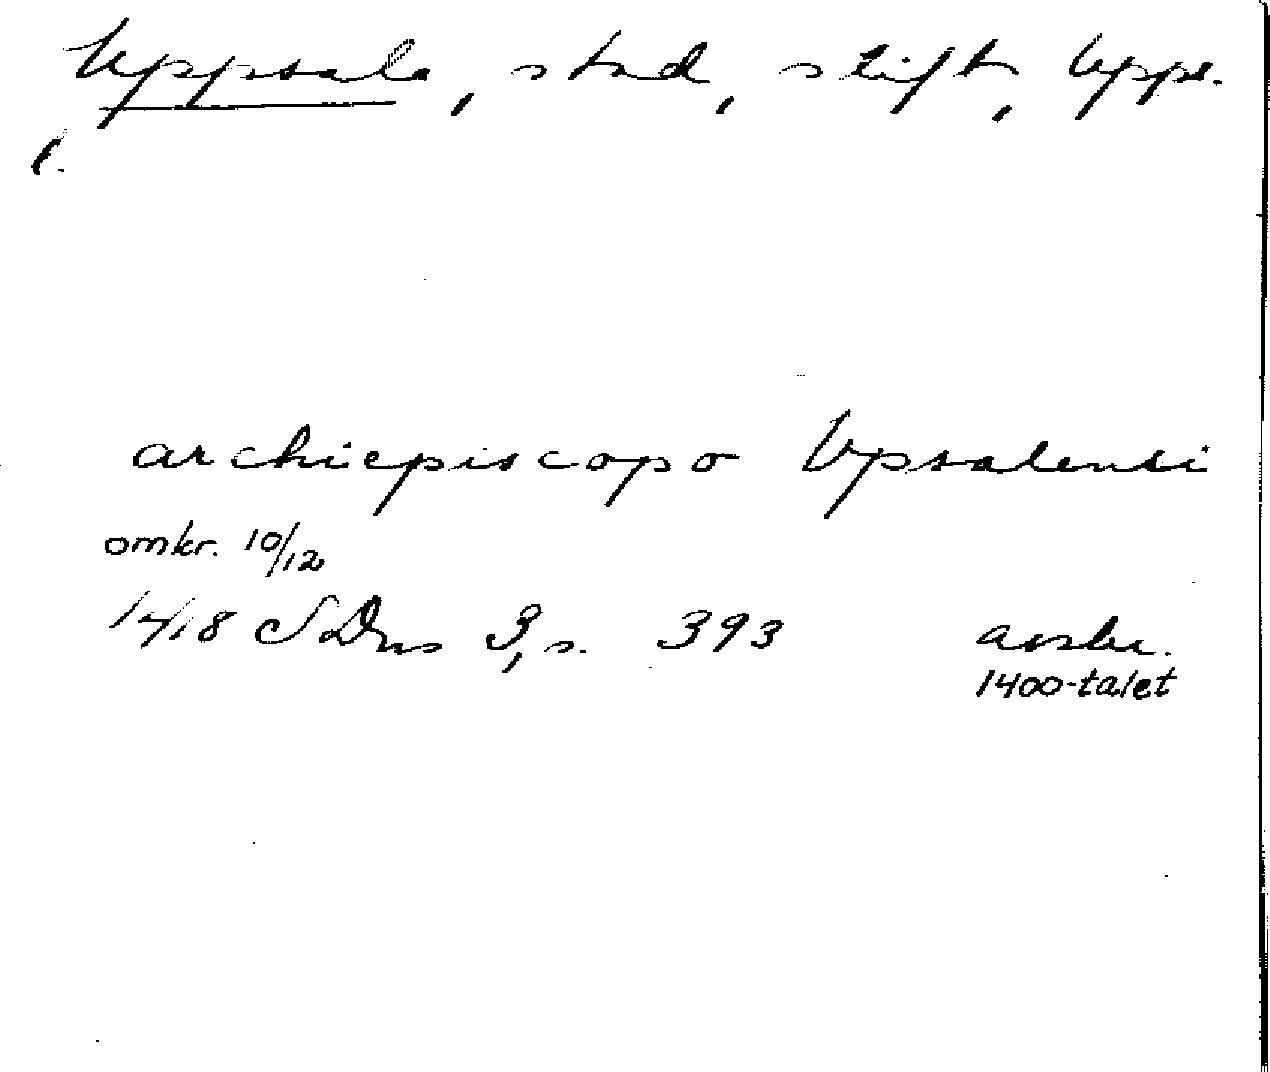 Uppsala, stad, stift, Uppl.
l.
archiepiscopo Upsalensi
omkr. 10/12
1418 SDns 3, s. 393 avskr.
1400-talet